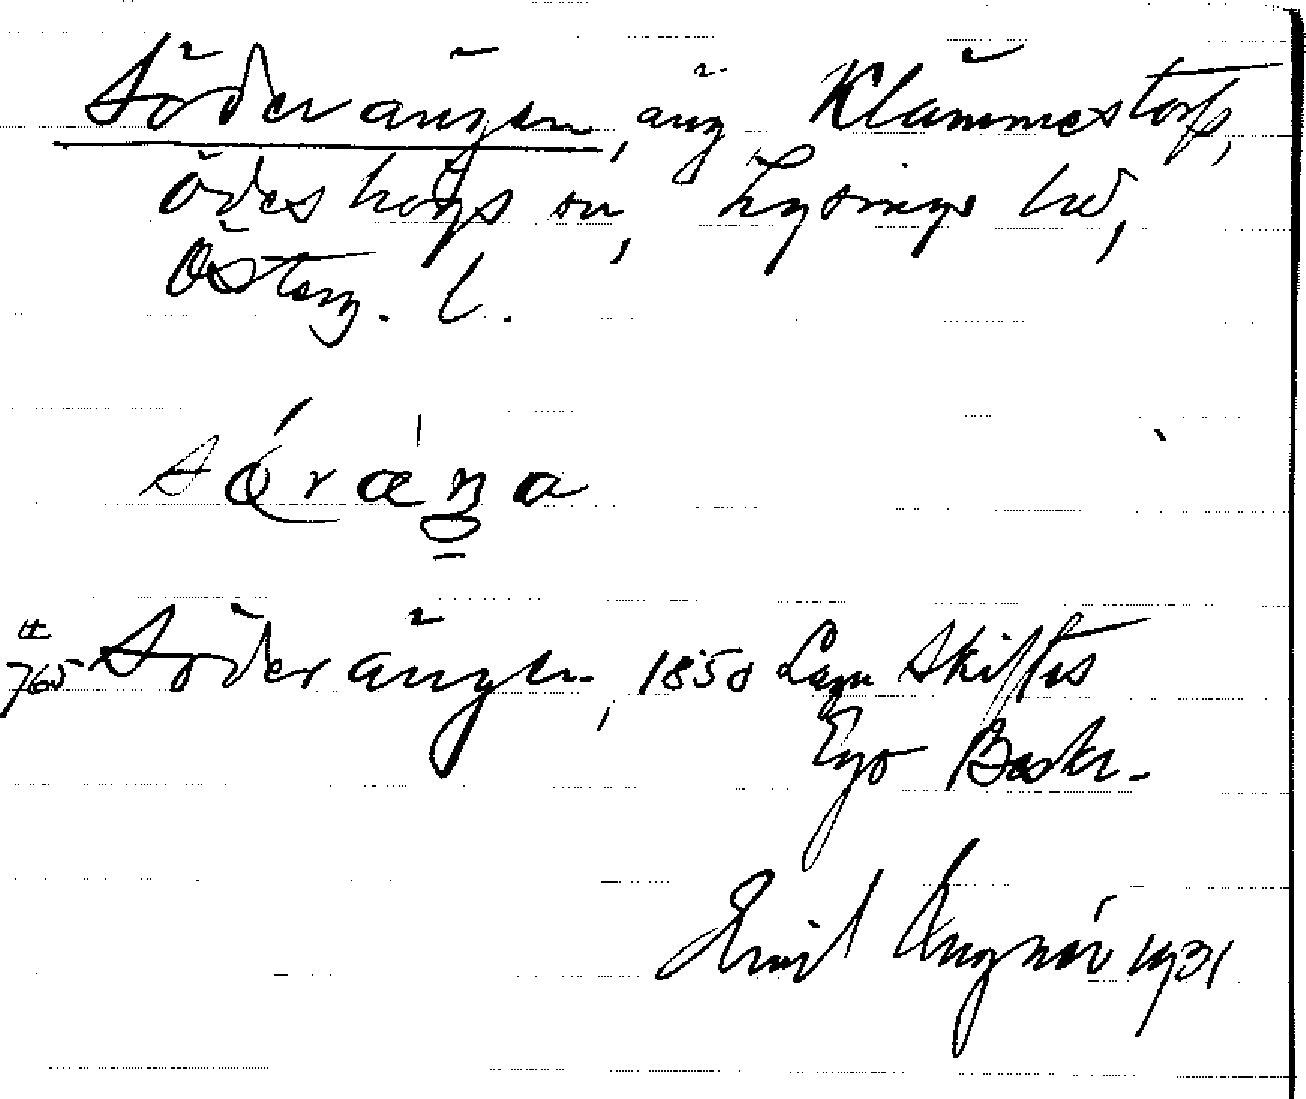 Söderängen, äng Klämmestorp,
Ödeshögs sn, Lysings hd,
Österg. l.
765 Söderängen, 1850 Laga Skiftes
Ego Beskr.
Emil 1931